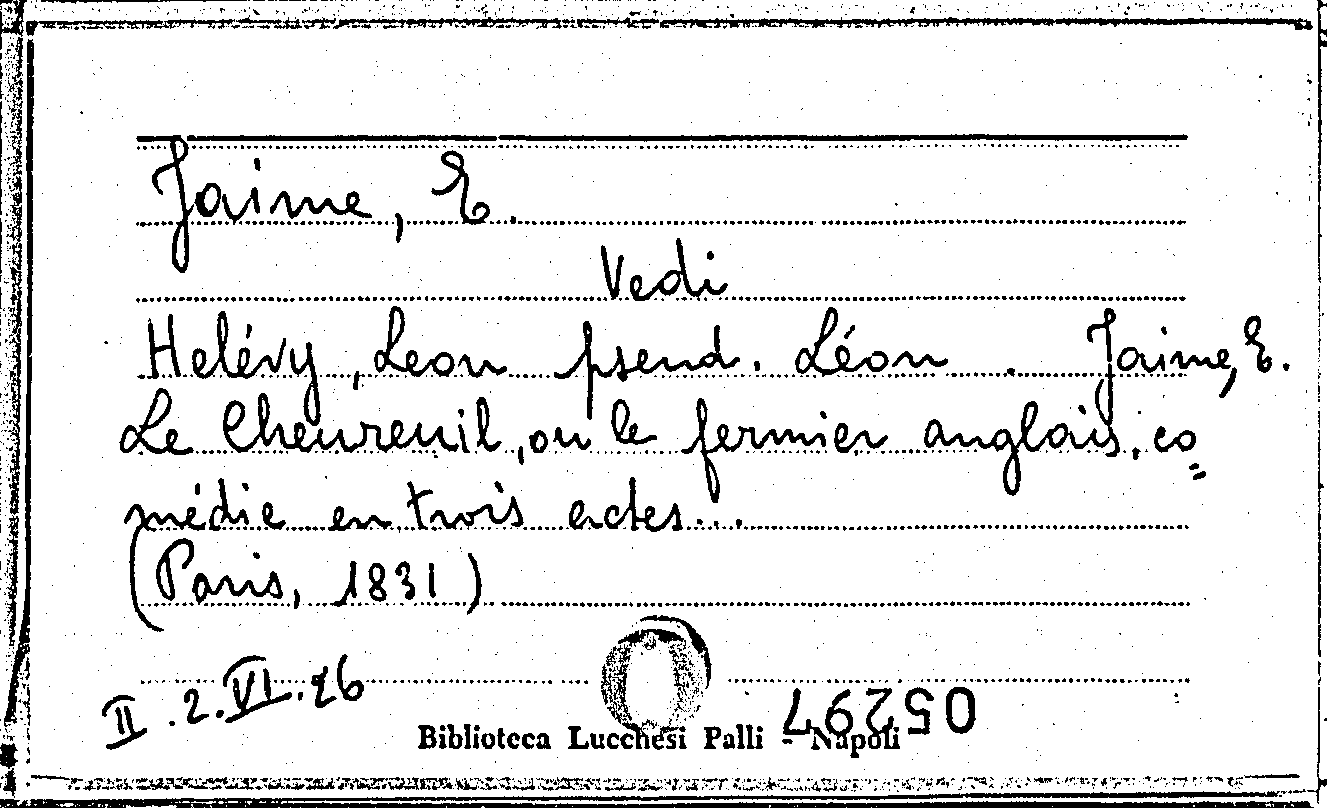 Jaime, E.
Vedi
Helévy, Leon pseud. Léon . Jaime, E.
Le Chevreuil, ou le fermier anglais, co=
médie en trois actes...
(Paris, 1831)
II.2.VI.26
05297
Biblioteca Lucchesi Palli - Napoli